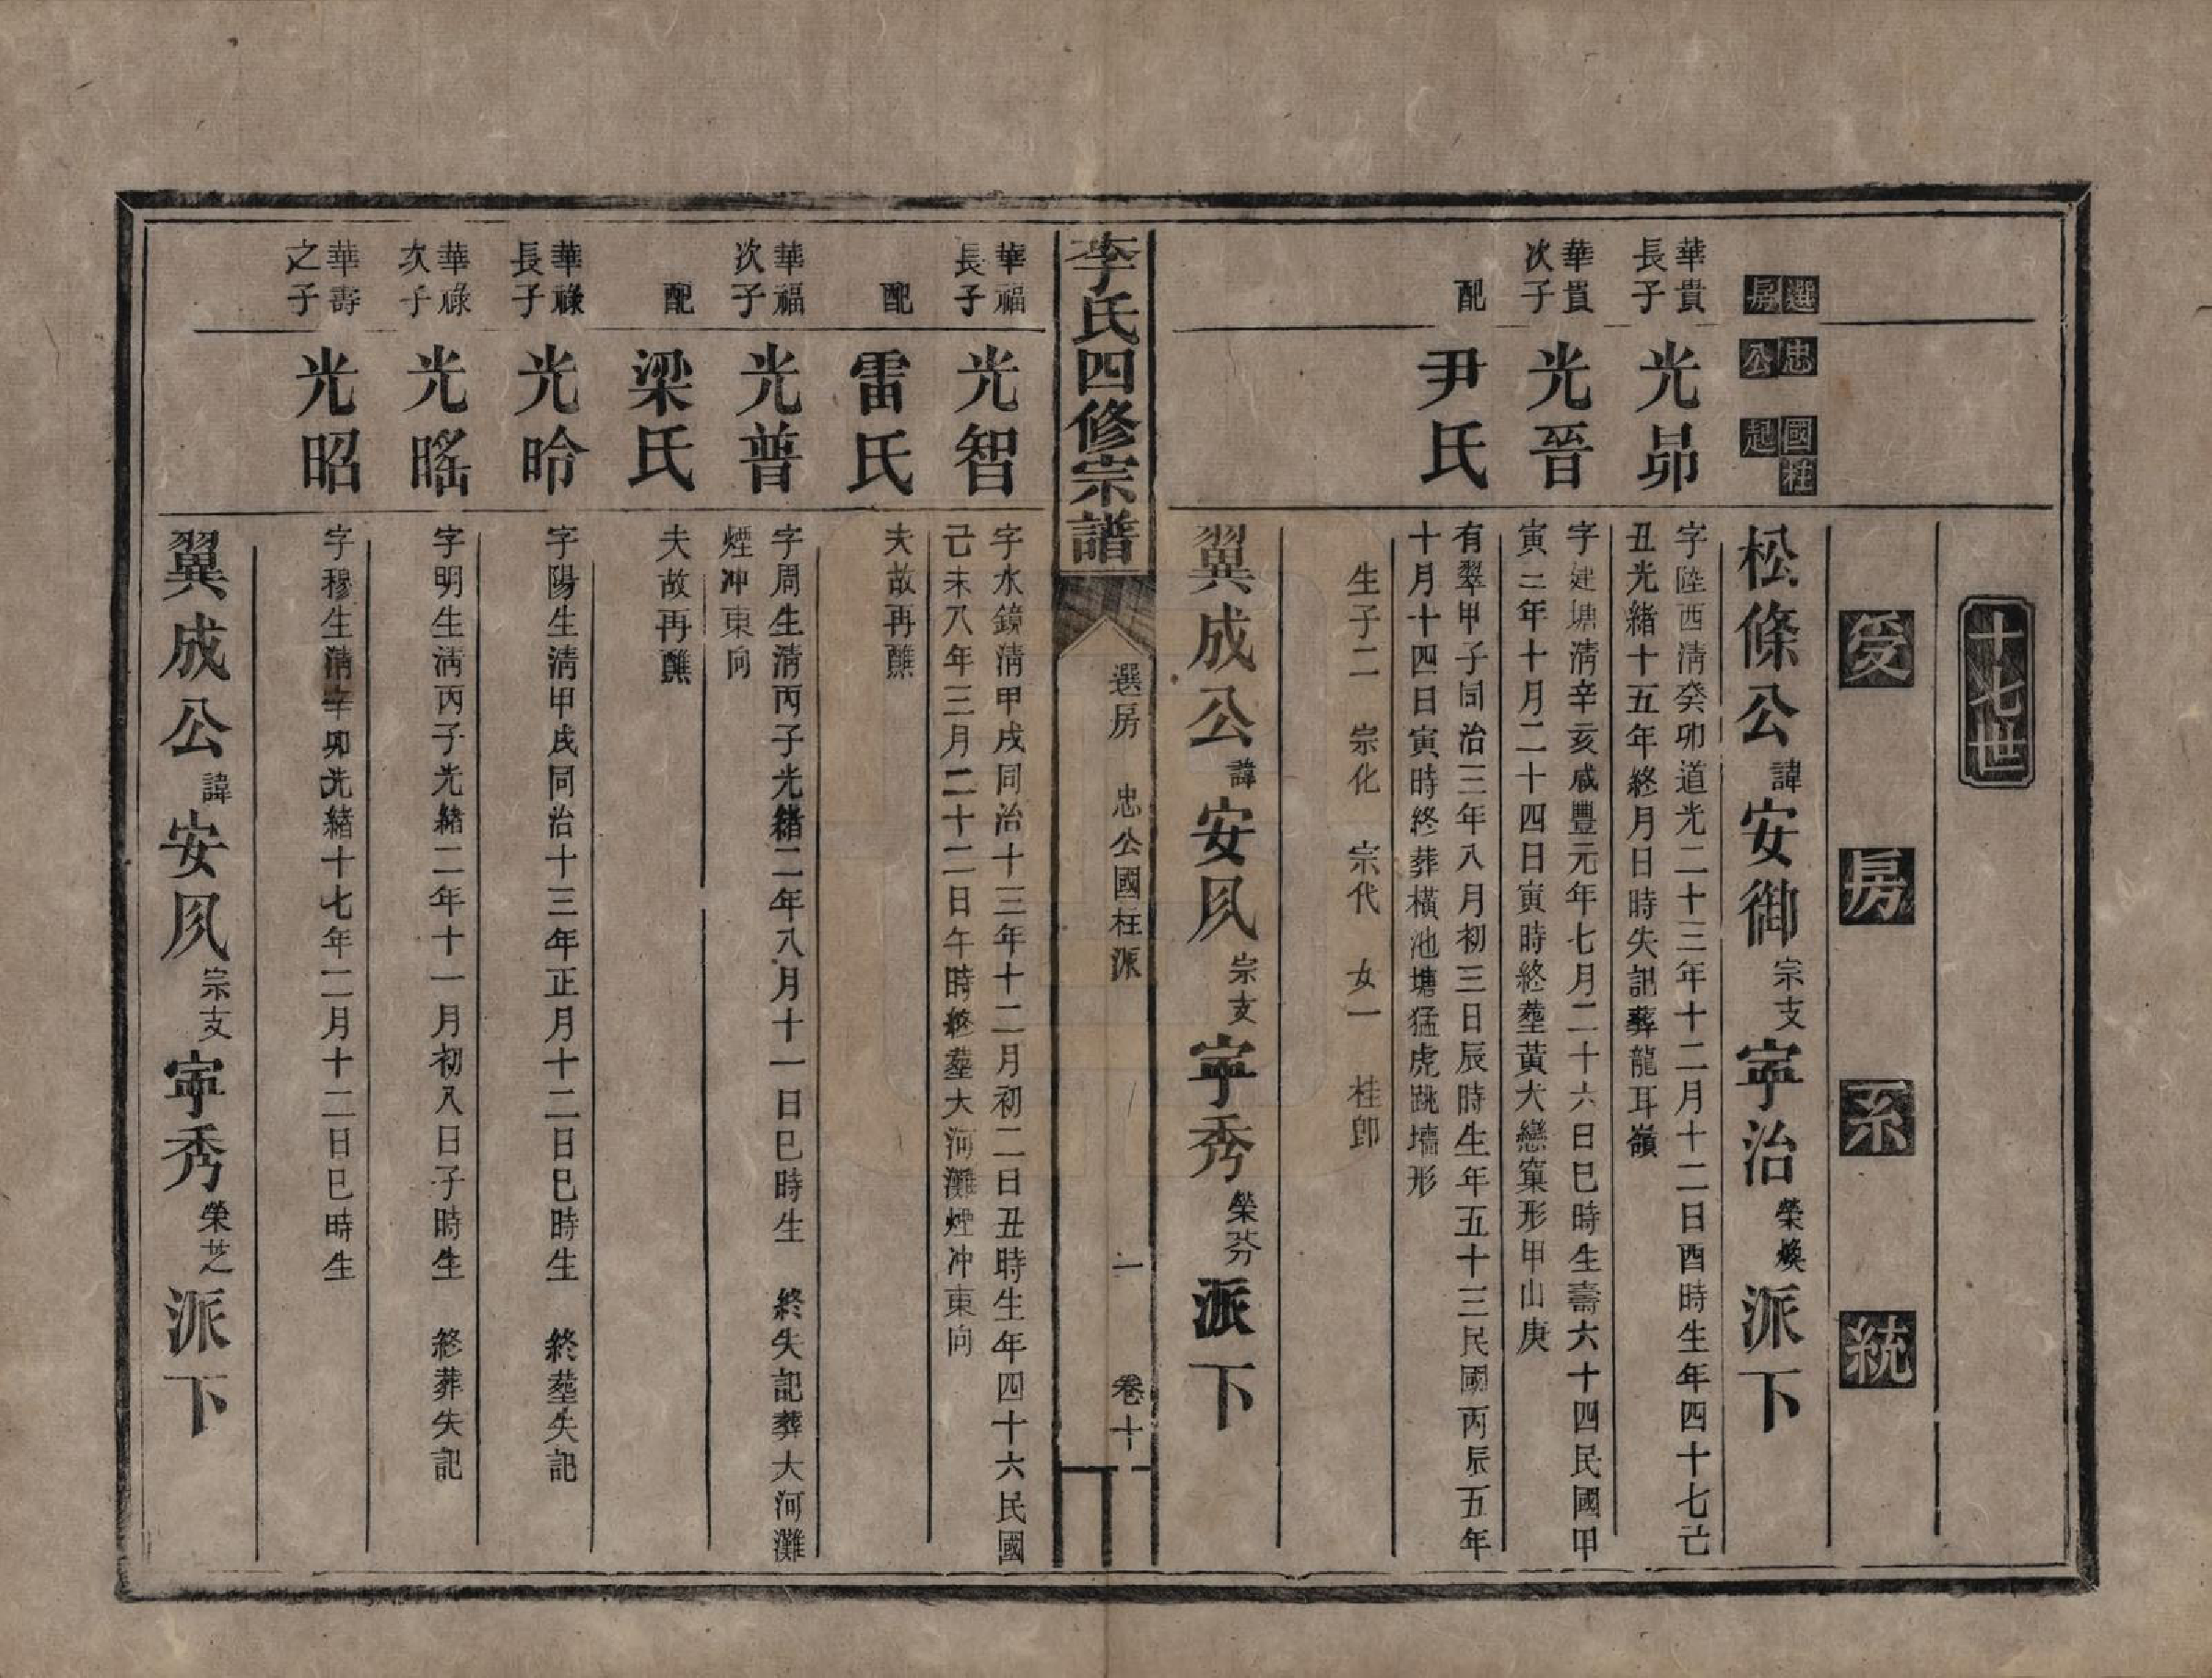 十七世
爰房系統
選房忠公國柱起
松條公諱安御宗支寜治榮煥派下
華貴長子
光昴
字陸西清癸卯道光二十三年十二月十二日酉時生年四十七亡
丑光緒十五年終月日時失記葬龍耳嶺
華貴次子
光晉
字建塘清辛亥咸豐元年七月二十六日巳時生壽六十四民國甲
寅三年十月二十四日寅時終塟黃犬戀窠形甲山庚
配
尹氏
有翠甲子同治三年八月初三日辰時生年五十三民國丙辰五年
十月十四日寅時終葬橫池塘猛虎跳墻形
生子二 宗化 宗代 女一 桂郎
翼成公諱安夙宗支寜秀榮芬派下
李氏四修宗譜
選房 忠公國柱派
一 卷十
華福長子
光智
字水鏡清甲戌同治十三年十二月初二日丑時生年四十六民國
己未八年三月二十二日午時終塟大河灘煙冲東向
配
雷氏
夫故再醮
華福次子
光普
字周生清丙子光緒二年八月十一日巳時生 終失記葬大河灘
煙冲東向
配
梁氏
夫故再醮
華祿長子
光昤
字陽生清甲戌同治十三年正月十二日巳時生 終塟失記
華祿次子
光暚
字明生清丙子光緒二年十一月初八日子時生 終葬失記
華壽之子
光昭
字穆生清辛卯光緒十七年二月十二日巳時生
翼成公諱安夙宗支寜秀榮芝派下